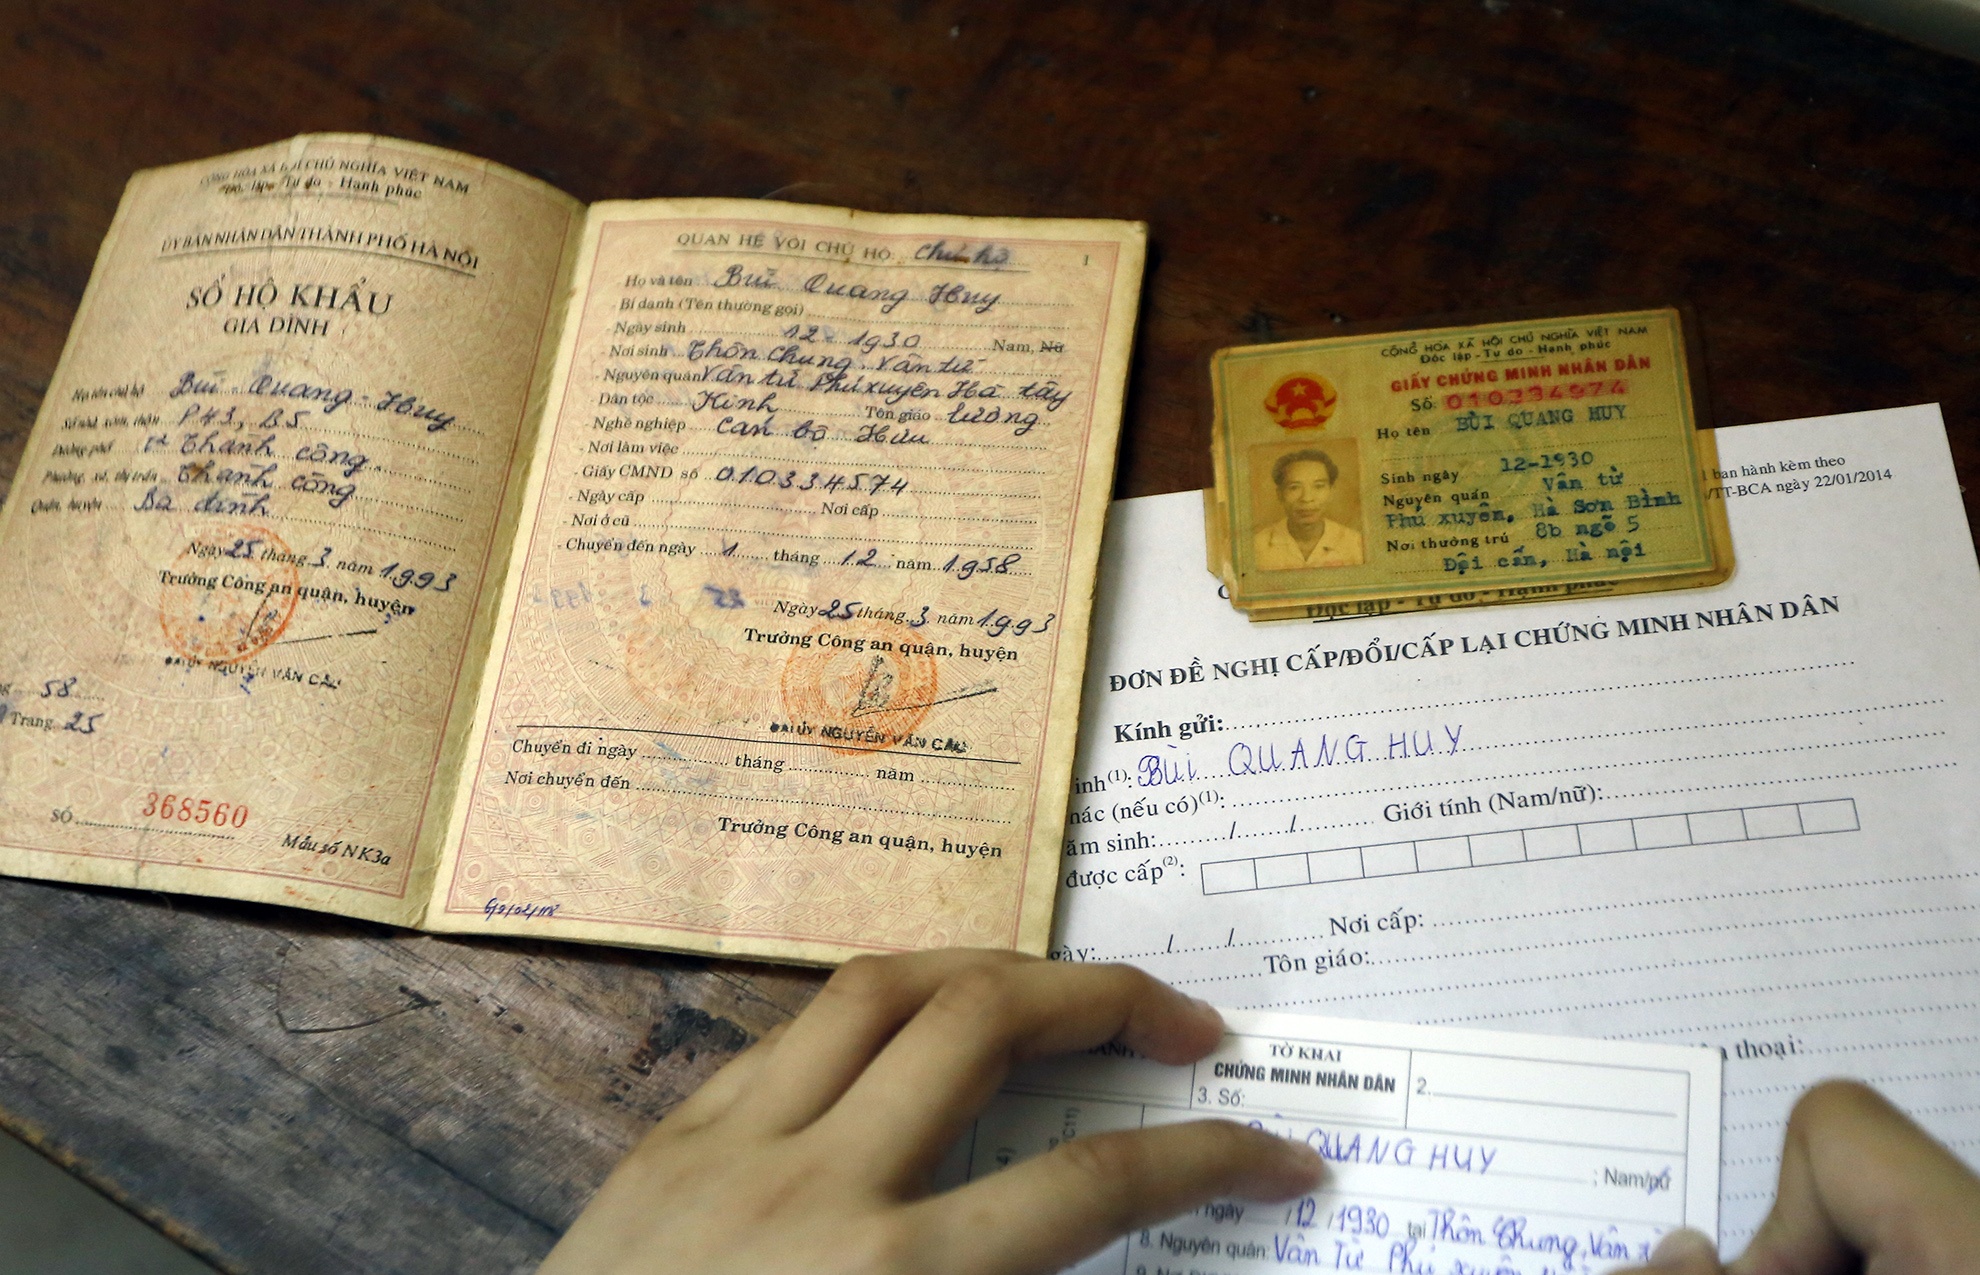 CỘNG HÒA XÃ HỘI CHỦ NGHĨA VIỆT NAM
Độc lập - Tự do - Hạnh phúc
ỦY BAN NHÂN DÂN THÀNH PHỐ HÀ NỘI
SỔ HỘ KHẨU
GIA ĐÌNH
Họ tên chủ hộ Bùi Quang Huy
Số nhà, xóm, thôn P43, B5
Đường phố Thành công
Phường, xã, thị trấn Thành công
Quận, huyện Ba đình
Ngày 25 tháng 3 năm 1993
Trưởng Công an quận, huyện
ĐẠI ÚY NGUYỄN VĂN CẦU
58
Trang 25
SỐ 368560
Mẫu số NK3a
QUAN HỆ VỚI CHỦ HỘ: Chủ hộ
1
Họ và tên Bùi Quang Huy
Bí danh (Tên thường gọi)
Ngày sinh 12 - 1930 Nam, Nữ
Nơi sinh Thôn Chung, Văn từ
Nguyên quán Văn từ Phú xuyên Hà tây
Dân tộc Kinh Tôn giáo lương
Nghề nghiệp Cán bộ Hưu
Nơi làm việc
Giấy CMND số 010334574
Ngày cấp Nơi cấp
Nơi ở cũ
Chuyển đến ngày 1 tháng 12 năm 1958
Ngày 25 tháng 3 năm 1993
Trưởng Công an quận, huyện
ĐẠI ÚY NGUYỄN VĂN CẦU
Chuyển đi ngày tháng năm
Nơi chuyển đến
Trưởng Công an quận, huyện
CỘNG HÒA XÃ HỘI CHỦ NGHĨA VIỆT NAM
Độc lập - Tự do - Hạnh phúc
GIẤY CHỨNG MINH NHÂN DÂN
Số 010334974
Họ tên BÙI QUANG HUY
Sinh ngày 12-1930
Nguyên quán Văn từ
Phú xuyên, Hà Sơn Bình
Nơi thường trú 8b ngõ 5
Đội cấn, Hà nội
ban hành kèm theo
/TT-BCA ngày 22/01/2014
Độc lập - Tự do - Hạnh phúc
ĐƠN ĐỀ NGHỊ CẤP/ĐỔI/CẤP LẠI CHỨNG MINH NHÂN DÂN
Kính gửi:
inh(1): BÙI QUANG HUY
hác (nếu có)(1):
ăm sinh: / / Giới tính (Nam/nữ):
được cấp(2):
gày: / / Nơi cấp:
Tôn giáo:
thoại:
TỜ KHAI
CHỨNG MINH NHÂN DÂN
2.
3. Số:
QUANG HUY ; Nam/nữ
ngày /12/1930 tại Thôn Chung, Văn
8. Nguyên quán: Văn Từ Phú xuyên